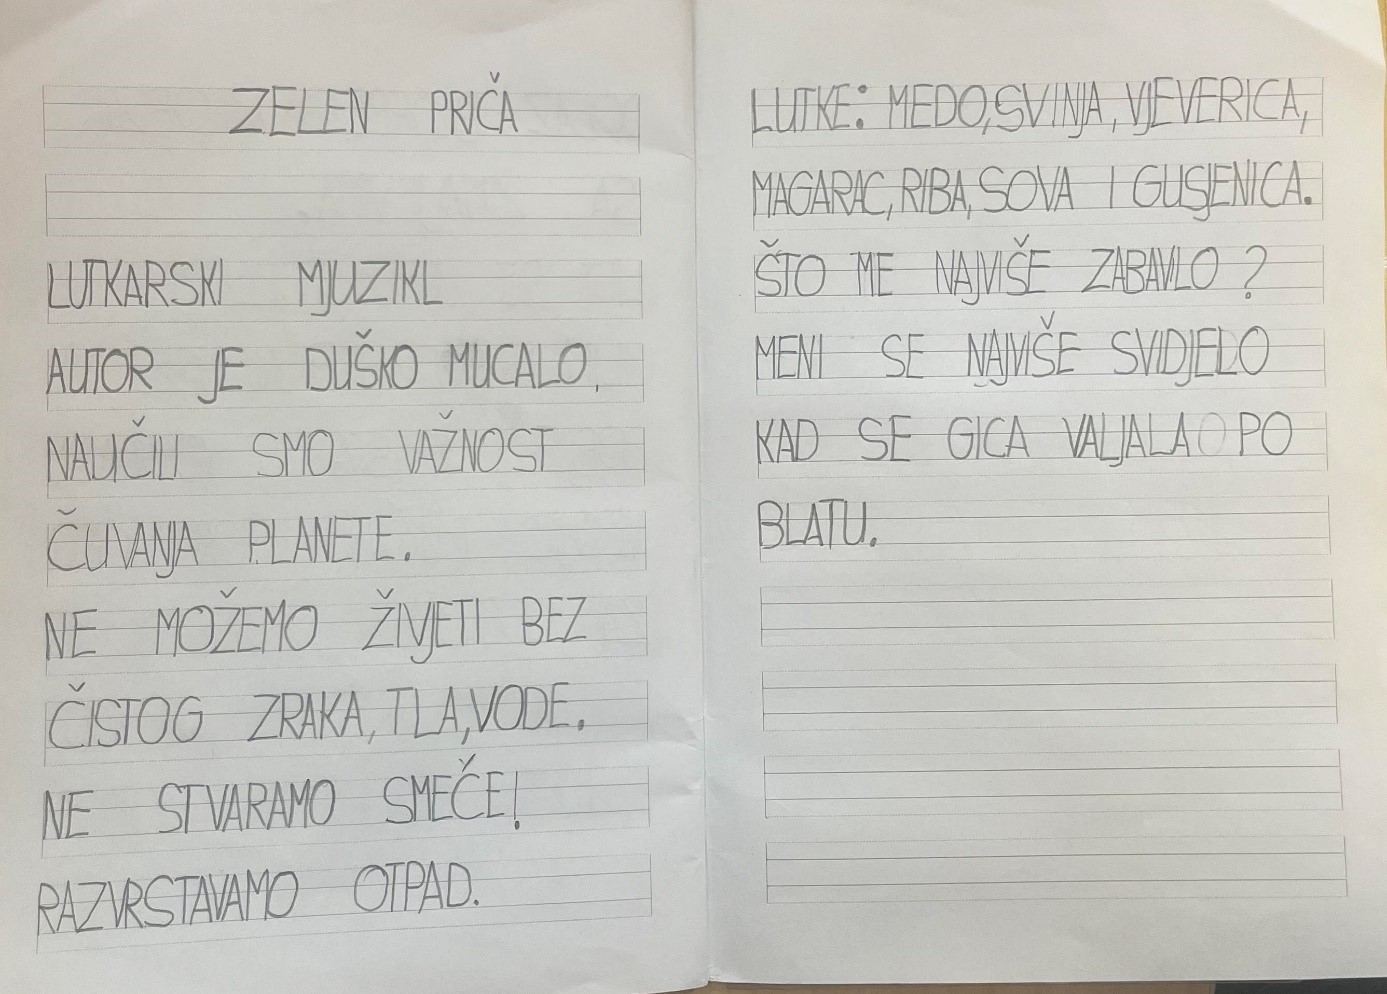 ZELEN PRIČA
LUTKARSKI MJUZIKL
AUTOR JE DUŠKO MUCALO.
NAUČILI SMO VAŽNOST
ČUVANJA PLANETE.
NE MOŽEMO ŽIVJETI BEZ
ČISTOG ZRAKA, TLA, VODE.
NE STVARAMO SMEČE!
RAZVRSTAVAMO OTPAD.
LUTKE: MEDO, SVINJA, VJEVERICA,
MAGARAC, RIBA, SOVA I GUSJENICA.
ŠTO ME NAJVIŠE ZABAVLO?
MENI SE NAJVIŠE SVIDJELO
KAD SE GICA VALJALA PO
BLATU.